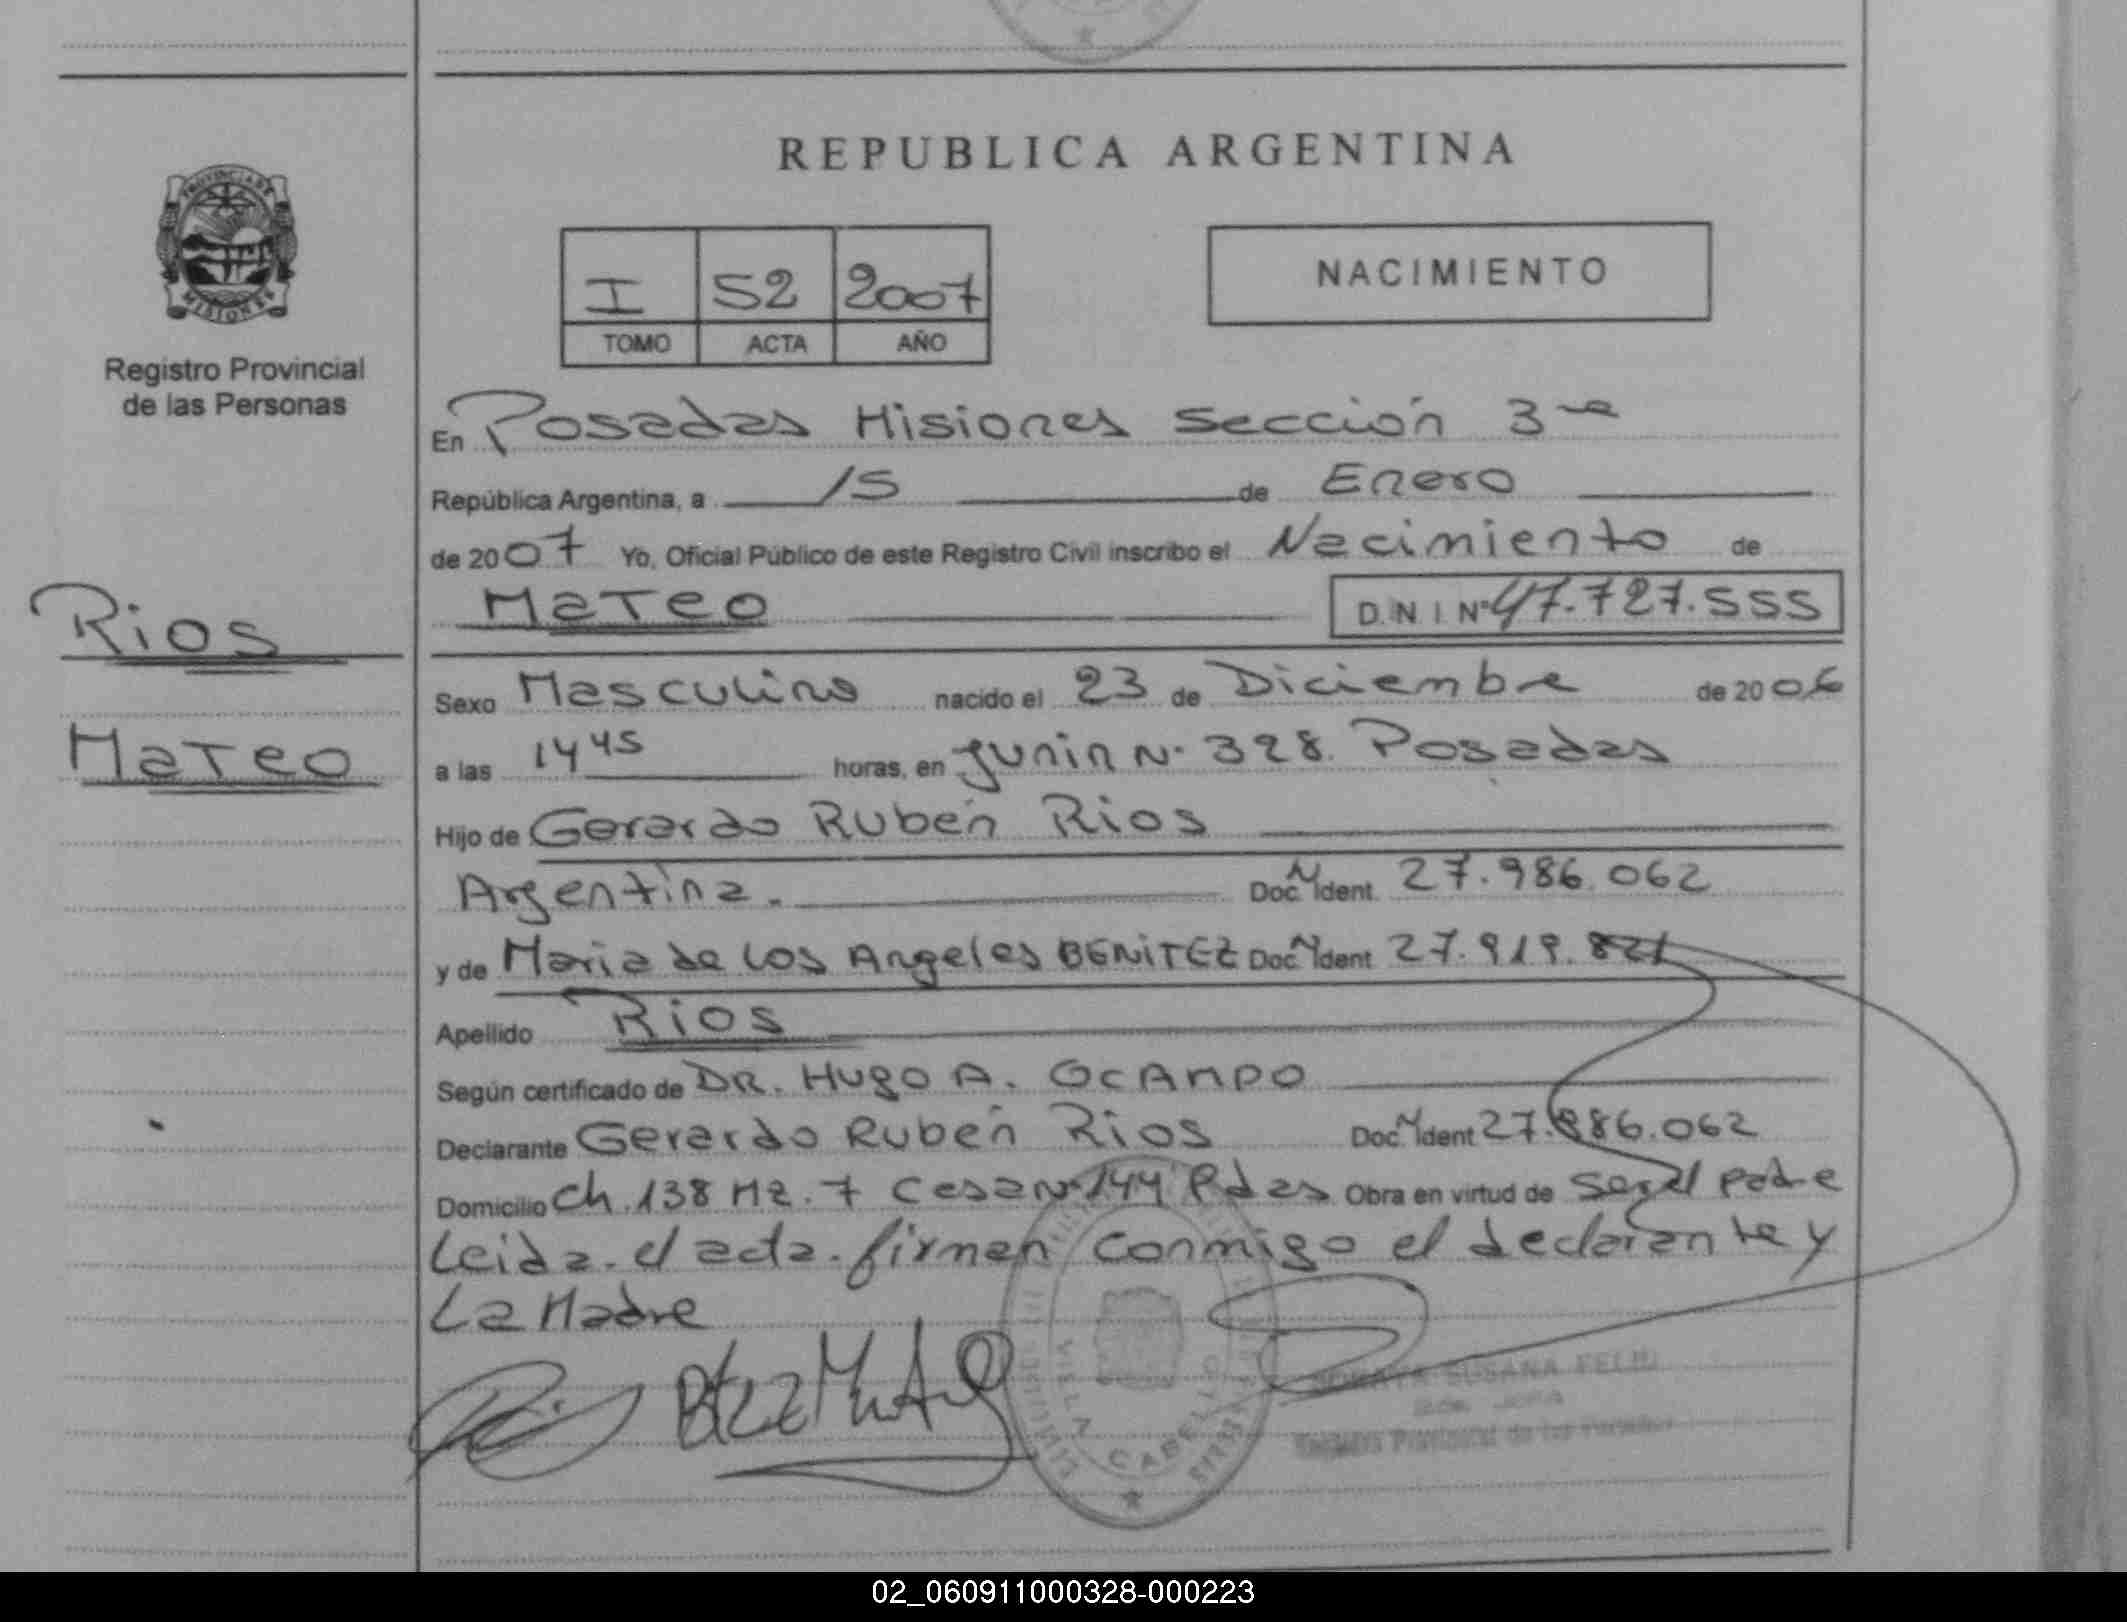 REPUBLICA ARGENTINA
PROVINCIA DE
MISIONES
Registro Provincial
de las Personas
I 52 2007
TOMO ACTA AÑO
NACIMIENTO
En Posadas Misiones Sección 3ra
República Argentina, a 15 de Enero
de 2007 Yo, Oficial Público de este Registro Civil inscribo el Nacimiento de
Mateo D.N.I Nº 47.727.555
Rios
Mateo
Sexo Masculino nacido el 23 de Diciembre de 2006
a las 14 45 horas, en Junin Nº 328. Posadas
Hijo de Gerardo Rubén Rios
Argentina. Doc. N Ident. 27.986.062
y de Maria de Los Angeles BENITEZ Doc. N Ident 27.919.821
Apellido Rios
Según certificado de DR. HUGO A. OCAMPO
Declarante Gerardo Rubén Rios Doc. N Ident 27.986.062
Domicilio Ch. 138 Mz. 7 Casa Nº 144 Pdas Obra en virtud de ser el padre
Leida el acta firman conmigo el declarante y
La Madre
VILLA CABELLO
SUSANA FELIU
Registro Provincial de las Personas
02_060911000328-000223